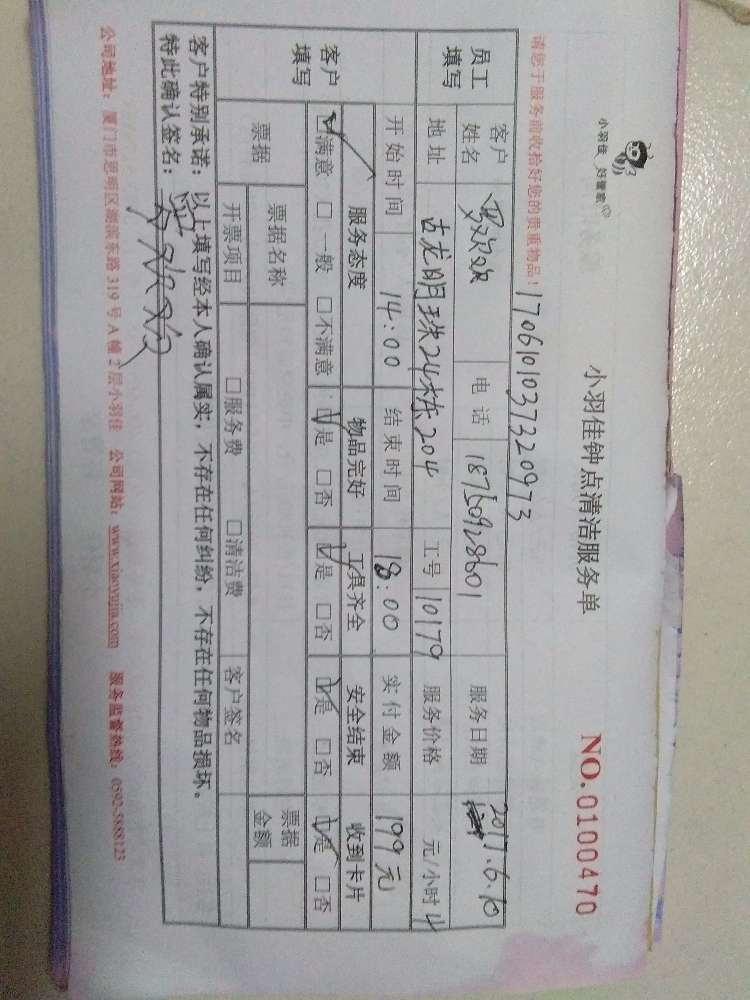 小羽佳 好管家
小羽佳钟点清洁服务单
NO.0100470
请您于服务前收拾好您的贵重物品!
1706101037320973
员工填写 客户姓名 罗欢欢 电话 18750928601 服务日期 2017.6.10
地址 古龙明珠24栋204 工号 10179 服务价格 元/小时 4
开始时间 14:00 结束时间 18:00 实付金额 199元
客户填写 服务态度 物品完好 工具齐全 安全结束 收到卡片
☑满意 □一般 □不满意 ☑是 □否 ☑是 □否 ☑是 □否 ☑是 □否
票据 票据名称 客户签名 票据金额
开票项目 □服务费 □清洁费
客户特别承诺:以上填写经本人确认属实,不存在任何纠纷,不存在任何物品损坏。
特此确认签名:
公司地址:厦门市思明区湖滨东路319号A幢2层小羽佳 公司网站:www.xiaoyujia.com 服务监督热线:0592-5888123